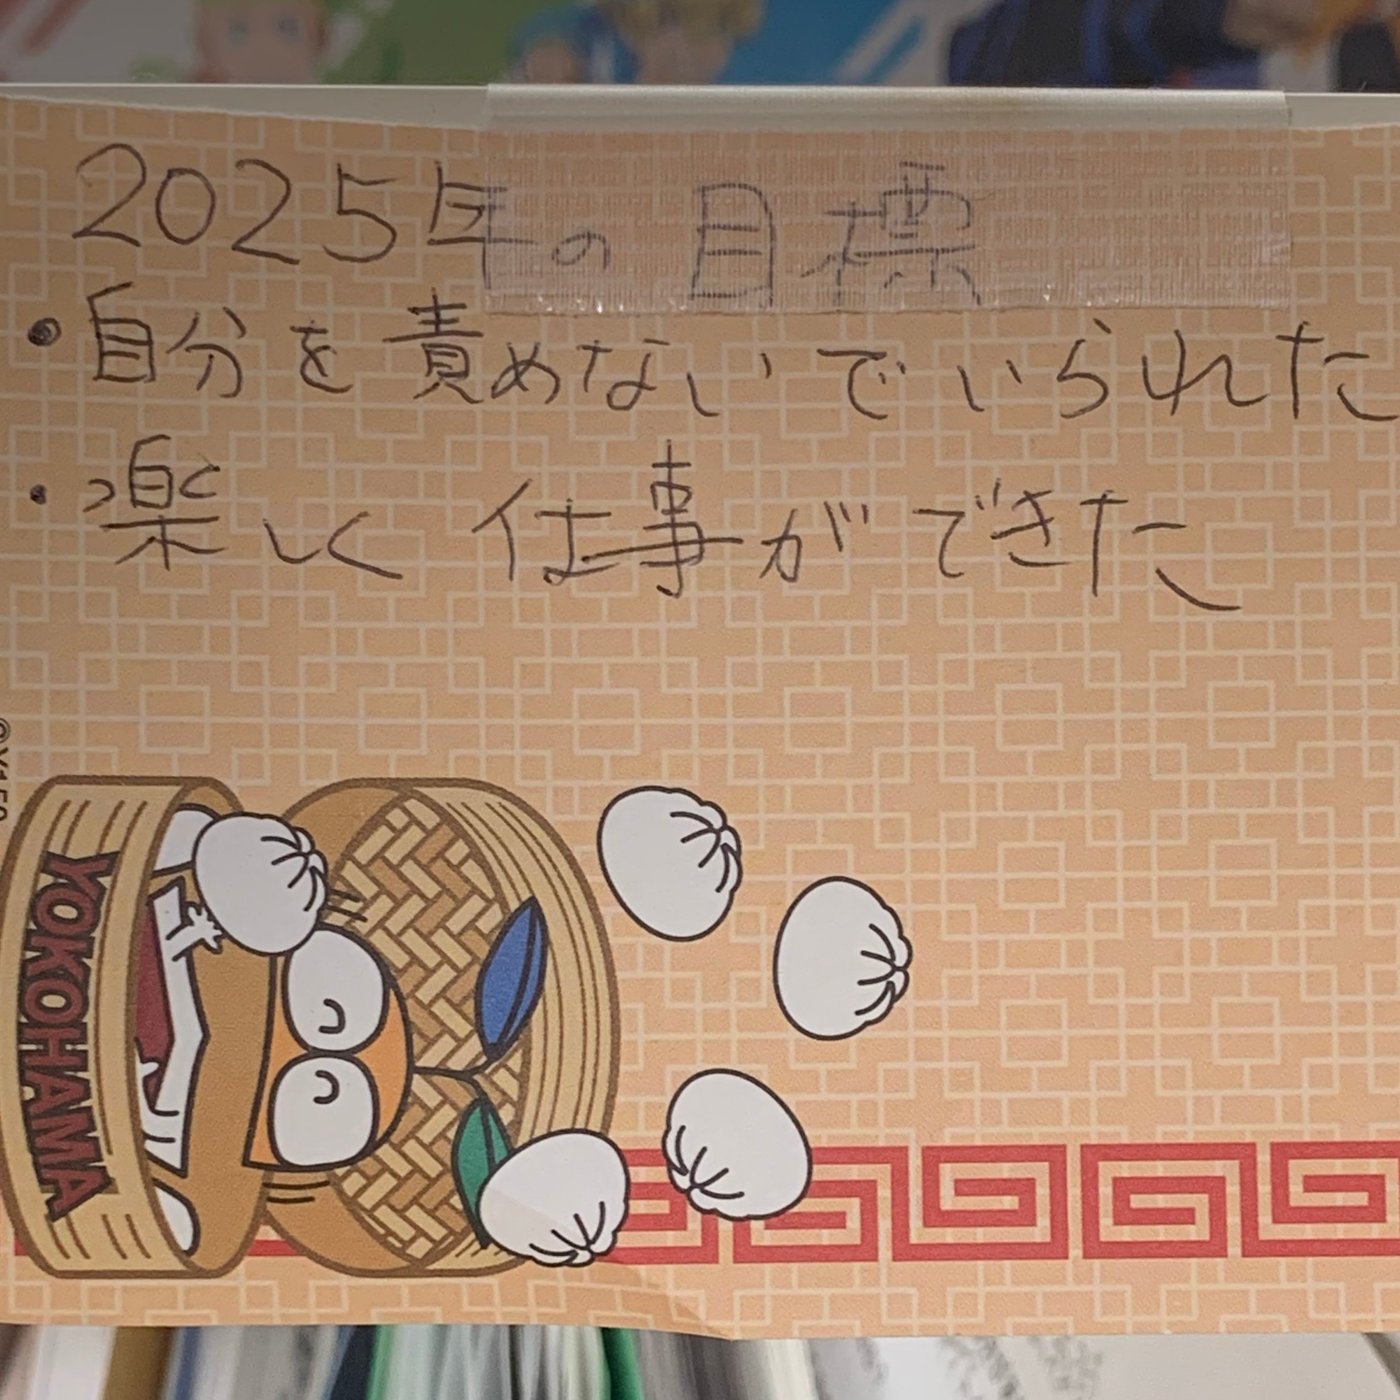 2025年の目標
・自分を責めないでいられた
・楽しく仕事ができた
YOKOHAMA